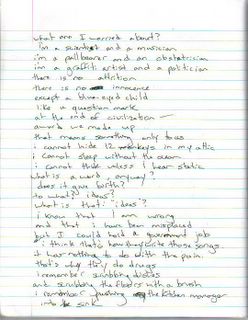 what am I worried about?
i'm a scientist and a musician
i'm a pallbearer and an obstetrician
i'm a graffiti artist and a politician
there is no attrition
there is no innocence
except a blue-eyed child
like a question mark
at the end of civilization —
a word we made up
that means something only to us
i cannot hide 12 monkeys in my attic
i cannot sleep without the ocean
i cannot think unless i hear static
what is a word, anyway?
does it give birth?
to what? ideas?
what is that: "ideas"?
i know that I am wrong
and that i have been misplaced
but I could hold a government job
i think that's how they write those songs
it has nothing to do with the pain.
that's why they do drugs
i remember scrubbing dishes
and scrubbing the floors with a brush
i remember pushing the kitchen manager
into the sink